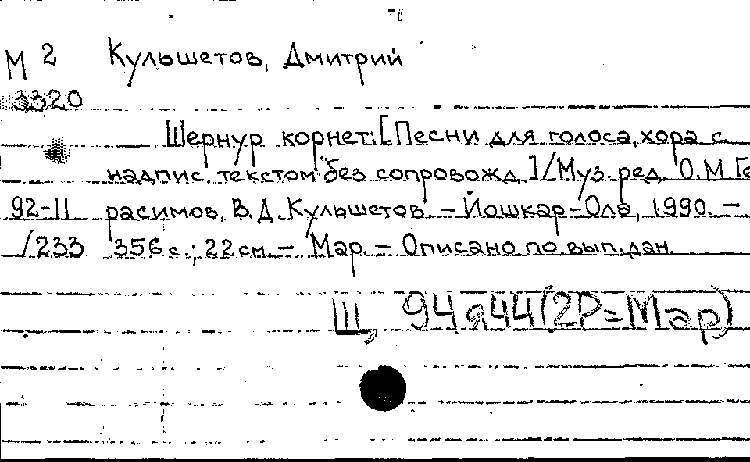 М 2 Кульшетов, Дмитрий
3320
Шернур корнет: [Песни для голоса, хора с
надпис. текстом без сопровожд.]/Муз. ред. О.М. Ге
92-11 расимов, В.Д. Кульшетов. – Йошкар-Ола, 1990. –
/233 356 с.; 22 см. – Мар. – Описано по вып. дан.
Щ, 94я44(2Р=Мар)